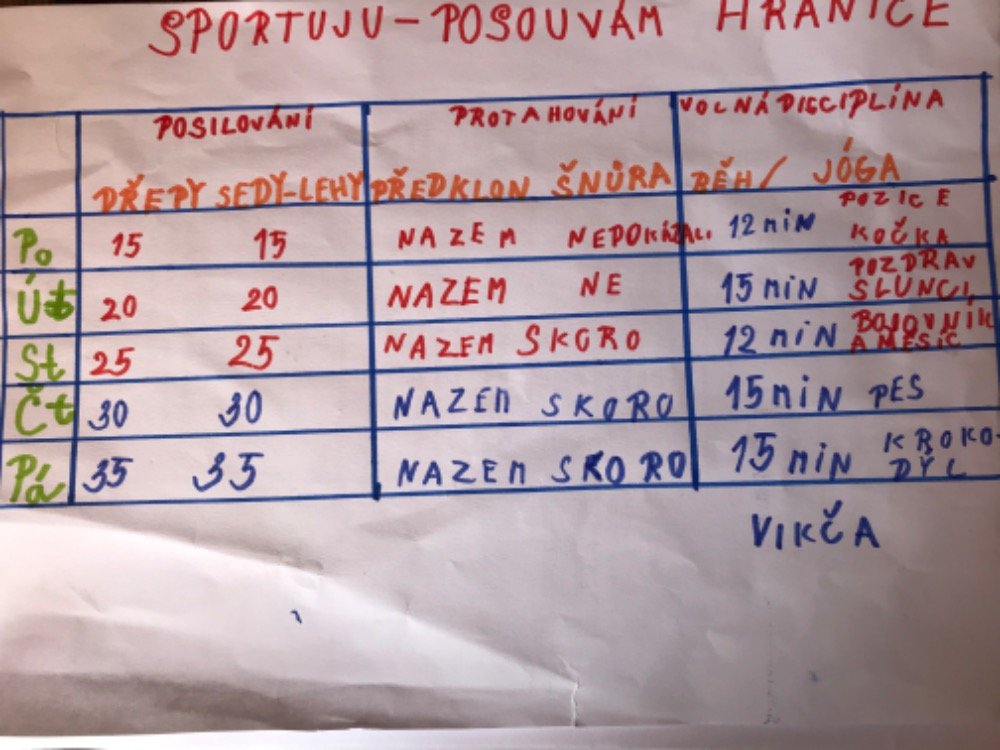 SPORTUJU - POSOUVÁM HRANICE
POSILOVÁNÍ PROTAHOVÁNÍ VOLNÁ DISCIPLÍNA
DŘEPY SEDY-LEHY PŘEDKLON ŠNŮRA BĚH/ JÓGA
Po 15 15 NAZEM NEDOKÁZALI 12 min POZICE KOČKA
Út 20 20 NAZEM NE 15 min POZDRAV SLUNCI,
St 25 25 NAZEM SKORO 12 min BOJOVNÍK A MĚSÍC
Čt 30 30 NAZEM SKORO 15 min PES
Pá 35 35 NAZEM SKORO 15 min KROKO- DÝL
VIKČA